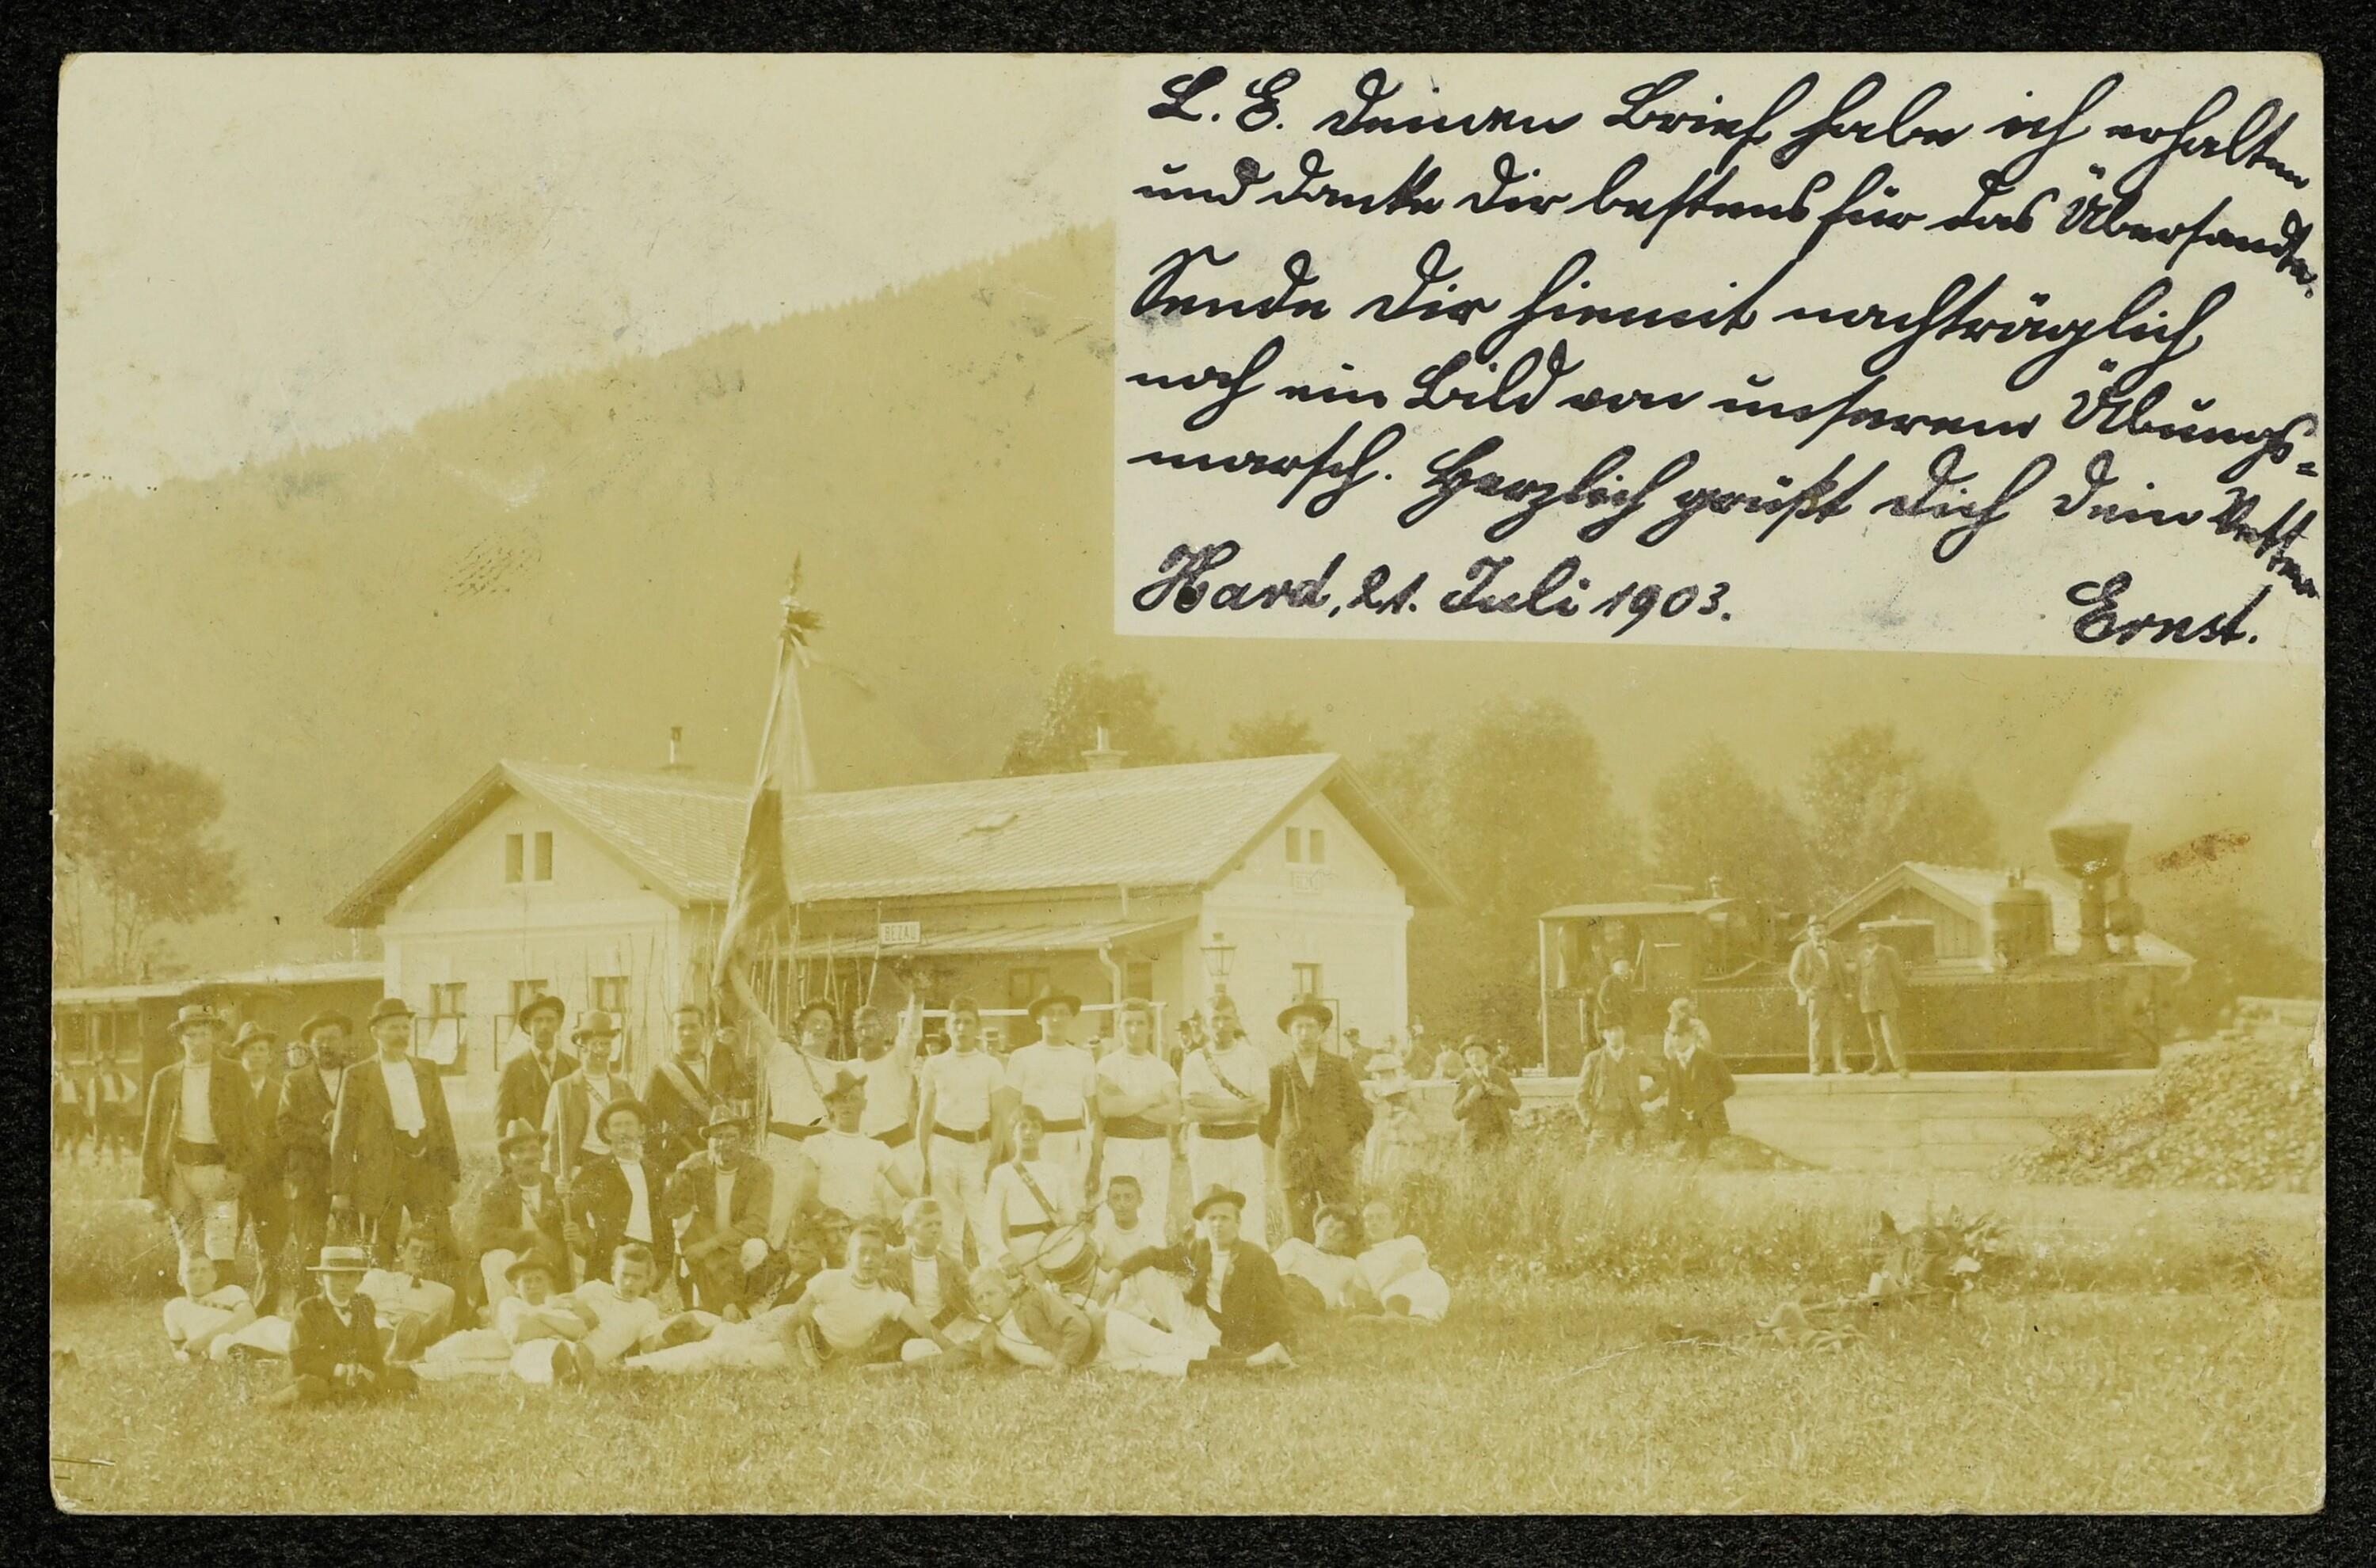 L. E. Deinen Brief habe ich erhalten
und danke Dir bestens für das Übersandte.
Sende Dir hiemit nachträglich
noch ein Bild von unserem Übungs=
marsch. Herzlich grüßt Dich Dein Vetter
Hard, 21. Juli 1903. Ernst.
BEZAU